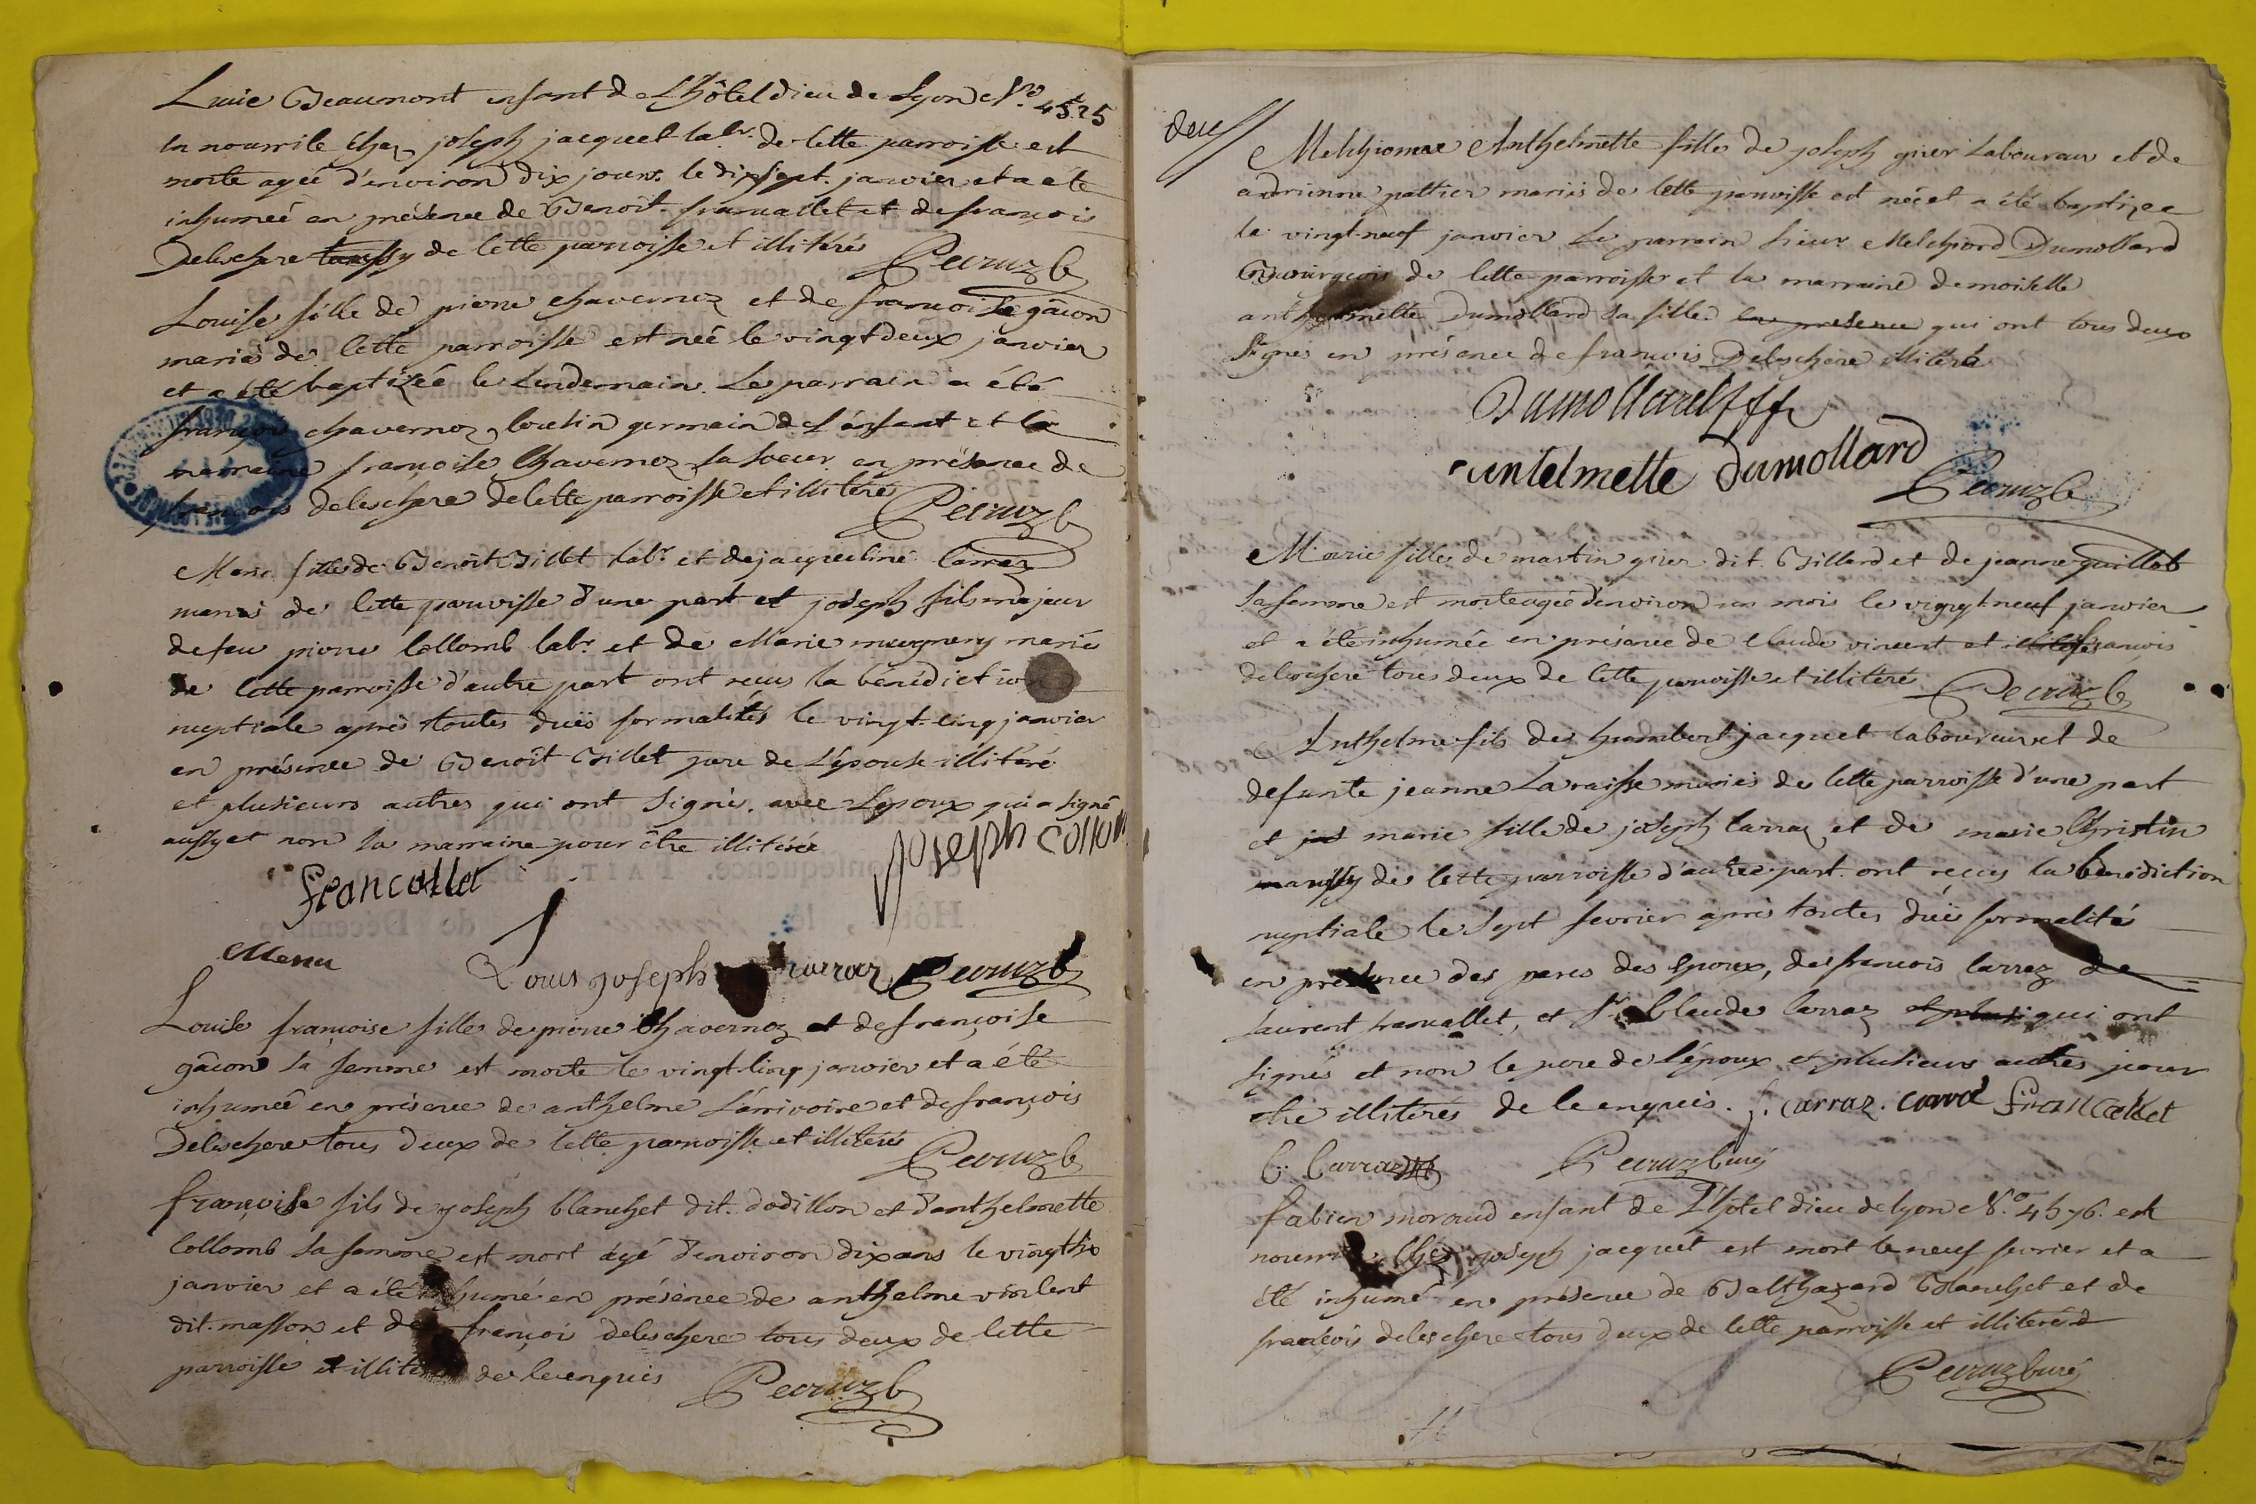 Lucie Beaumont enfant de L'hôtel dieu de Lyon No. 4525
en nourrice chez joseph jacquet labr. de cette parroisse est
morte agée d'environ dix jours le dix sept janvier et a été
inhumeé en présence de Benoit francallet et de françois
Deleschere de cette parroisse et illiterés Pecruz C
Louise fille de pierre chavernoz et de francoise gâcon
mariés de cette parroisse est née le vingt deux janvier
et a été baptizée le Lendemain. Le parrain a été
françois chavernoz cousin germain de L'enfant et la
marraine françoise Chavernoz sa soeur en présence de
francois deleschere de cette parroisse et illiteré
Pecruz C
Marie fille de Benoit Billet labr. et de jacqueline Carraz
mariés de cette parroisse d'une part et joseph fils majeur
defeu pierre Collomb labr. et de Marie meugnery mariés
de cette parroisse d'autre part ont recus la bénédiction
nuptiale après toutes duës formalités le vingt-cinq janvier
en présence de Benoît Billet pere de L'épouse illiteré
et plusieurs autres qui ont signés. avec L'epoux qui a signé
aussy et non la marraine pour être illiterée
joseph collom
francallet
Menu Louis joseph carraz Pecruz C
Louise françoise fille de pierre Chavernoz et de françoise
gâcon sa femme est morte le vingt-cinq janvier et a été
inhumeé en présence de anthelme Lárrivoire et de françois
Deleschere tous deux de cette parroisse et illiterés
Pecruz C
françoise fils de joseph blanchet dit dodillon et d'anthelmette
Collomb sa femme est mort âgé d'environ dix ans le vingt six
janvier et a été inhumé en présence de anthelme violent
dit masson et de françois deleschere tous deux de cette
parroisse et illiterés de ce enquis Pecruz C
deux
Melchiorne Anthelmette fille de joseph girer Laboureur et de
adrienne pattier mariés de cette parroisse est néé et a été baptizee
le vingt-neuf janvier Le parrain sieur Melchiord Dumollard
Bourgeois de cette parroisse et la marraine demoiselle
anthelmette Dumollard sa fille la presence qui ont tous deux
signés en présence de francois Deleschere illiteré
Dumollard
antelmette Dumollard
Pecruz C
Marie fille de martin girer dit Billard et de jeanne guillot
sa femme est morte agée d'environ un mois le vingt-neuf janvier
et a été inhumée en présence de Claude vincent et francois
deleschere tous deux de cette parroisse et illiterés
Pecruz C
Anthelme fils de humbert jacquet laboureur et de
defunte jeanne Laraisse mariés de cette parroisse d'une part
et marie fille de joseph Carraz et de marie Christin
aussy de cette parroisse d'autre part ont recus la bénédiction
nuptiale le sept fevrier après toutes duës formalités
en présence des peres des Epoux, de francois Carraz de
laurent francallet, et Sr. Claude Carraz et plusi qui ont
signés et non le pere de l'époux et plusieurs autres pour
être illiterés de ce enquis. j. carraz. carra francallet
C. Carraz Pecruz curé
fabien moraud enfant de L'hôtel dieu de lyon No. 4576. en
nourrice Chez joseph jacquet est mort le neuf fevrier et a
été inhumé en présence de Balthazard Blanchet et de
francois deleschere tous deux de cette parroisse et illiterés
Pecruz curé